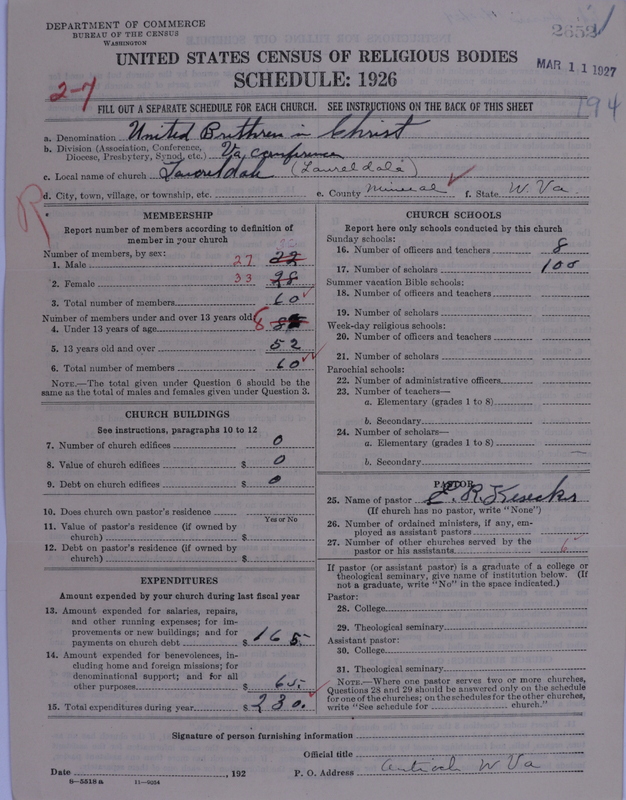 DEPARTMENT OF COMMERCE
BUREAU OF THE CENSUS
WASHINGTON
2652
MAR 11 1927
UNITED STATES CENSUS OF RELIGIOUS BODIES
SCHEDULE: 1926
2-7
194
FILL OUT A SEPARATE SCHEDULE FOR EACH CHURCH. SEE INSTRUCTIONS ON THE BACK OF THIS SHEET
a. Denomination United Brethren in Christ
b. Division (Association, Conference,
Diocese, Presbytery, Synod, etc.) Va Conference
c. Local name of church Laureldale (Laureldale)
d. City, town, village, or township, etc. e. County Mineral f. State W. Va.
R
MEMBERSHIP
Report number of members according to definition of
member in your church
Number of members, by sex:
1. Male 27 22
2. Female 33 28
3. Total number of members 60
Number of members under and over 13 years old:
4. Under 13 years of age 8
5. 13 years old and over 52
6. Total number of members 60
NOTE.—The total given under Question 6 should be
same as the total of males and females given under Question 3.
CHURCH BUILDINGS
See instructions, paragraphs 10 to 12
7. Number of church edifices 0
8. Value of church edifices $ 0
9. Debt on church edifices $ 0
10. Does church own pastor's residence
Yes or No
11. Value of pastor's residence (if owned by
church) $
12. Debt on pastor's residence (if owned by
church) $
EXPENDITURES
Amount expended by your church during last fiscal year
13. Amount expended for salaries, repairs,
and other running expenses; for im-
provements or new buildings; and for
payments on church debt $ 165.
14. Amount expended for benevolences, in-
cluding home and foreign missions; for
denominational support; and for all
other purposes $ 65.
15. Total expenditures during year $ 230.
CHURCH SCHOOLS
Report here only schools conducted by this church
Sunday schools:
16. Number of officers and teachers 8
17. Number of scholars 100
Summer vacation Bible schools:
18. Number of officers and teachers
19. Number of scholars
Week-day religious schools:
20. Number of officers and teachers
21. Number of scholars
Parochial schools:
22. Number of administrative officers
23. Number of teachers—
a. Elementary (grades 1 to 8)
b. Secondary
24. Number of scholars—
a. Elementary (grades 1 to 8)
b. Secondary
PASTOR
25. Name of pastor E. R. Kesecker
(If church has no pastor, write "None")
26. Number of ordained ministers, if any, em-
ployed as assistant pastors
27. Number of other churches served by the
pastor or his assistants 6
If pastor (or assistant pastor) is a graduate of a college or
theological seminary, give name of institution below. (If
not a graduate, write "No" in the space indicated.)
Pastor:
28. College
29. Theological seminary
Assistant pastor:
30. College
31. Theological seminary
NOTE.—Where one pastor serves two or more churches,
Questions 28 and 29 should be answered only on the schedule
for one of the churches; on the schedules for the other churches,
write "See schedule for church."
Signature of person furnishing information
Official title
Date , 192 P. O. Address Antioch W Va
8-5518 a 11-9254